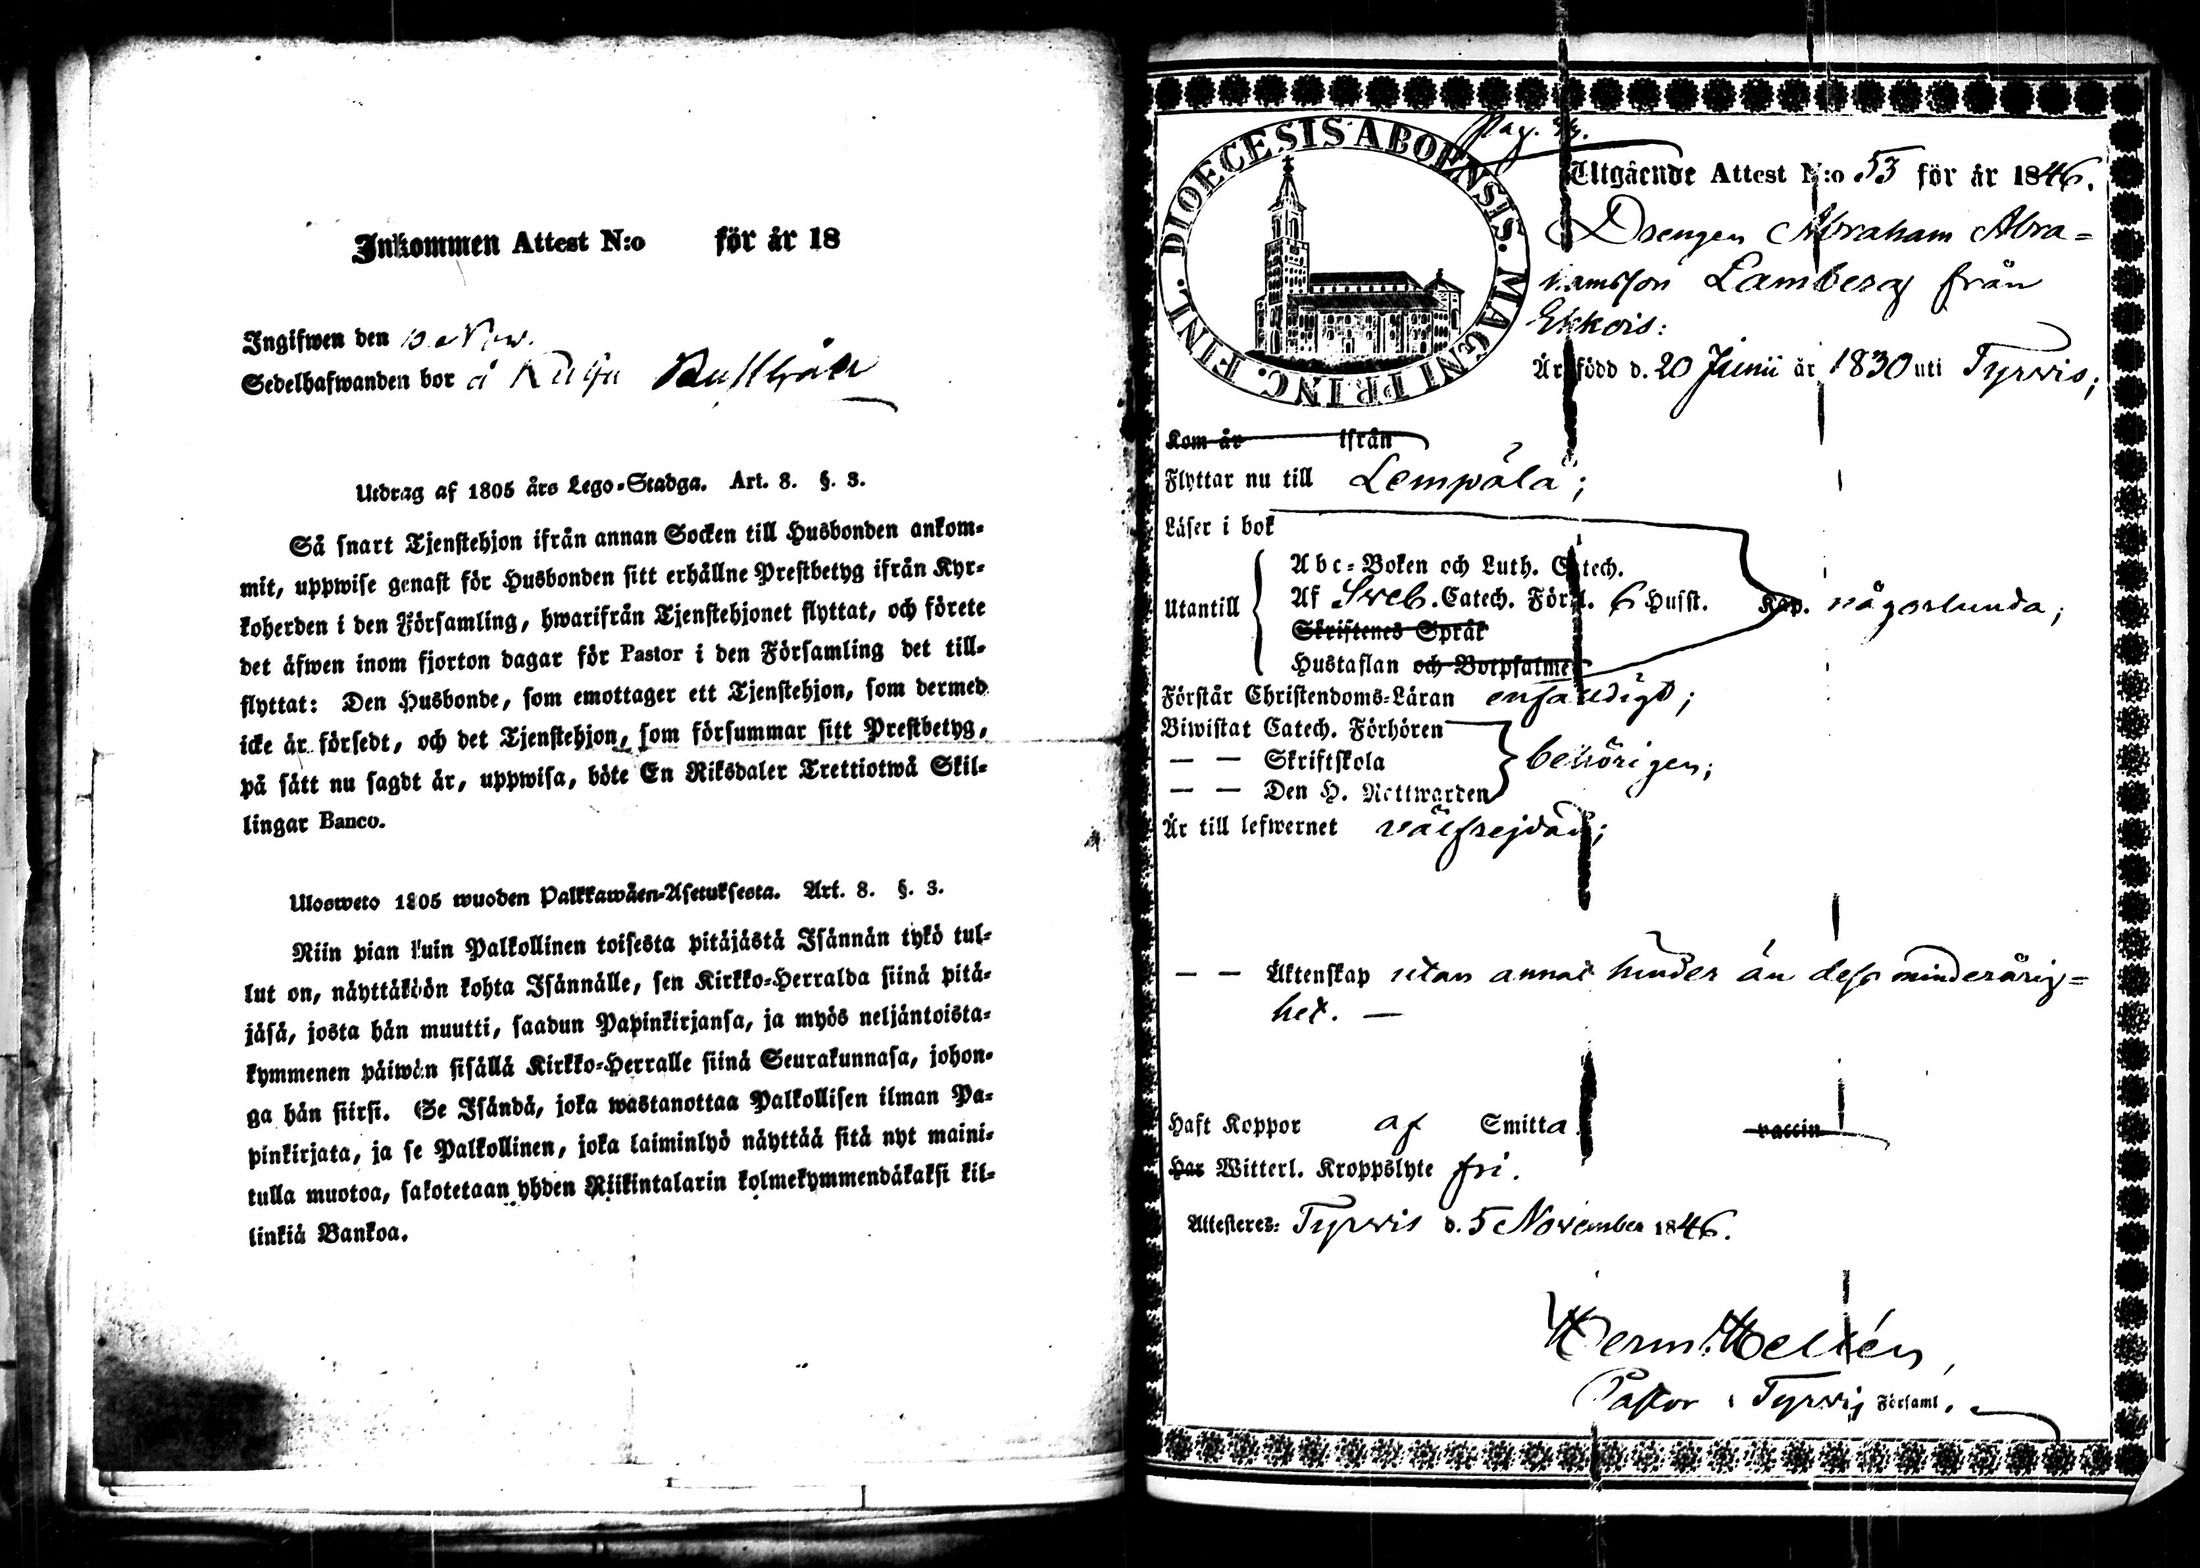 Inkommen Attest N:o för år 18
Ingifwen den Nov.
Sedelhafwanden bor å
Utdrag af 1805 års Lego-Stadga. Art. 8. §. 3.
Så snart Tjenstehjon ifrån annan Socken till Husbonden ankom-
mit, uppwise genast för Husbonden sitt erhållne Prestbetyg ifrån Kyr-
koherden i den Församling, hwarifrån Tjenstehjonet flyttat, och förete
det äfwen inom fjorton dagar för Pastor i den Församling det till-
flyttat: Den Husbonde, som emottager ett Tjenstehjon, som dermed
icke är försedt, och det Tjenstehjon, som försummar sitt Prestbetyg,
på sätt nu sagdt är, uppwisa, böte En Riksdaler Trettiotwå Skil-
lingar Banco.
Ulosweto 1805 wuoden Palkkawäen-Asetuksesta. Art. 8. §. 3.
Niin pian kuin Palkollinen toisesta pitäjästä Isännän tykö tul-
lut on, näyttäköön kohta Isännälle, sen Kirkko-Herralda siinä pitä-
jäsä, josta hän muutti, saadun Papinkirjansa, ja myös neljäntoista-
kymmenen päiwän sisällä Kirkko-Herralle siinä Seurakunnasa, johon-
ga hän siirsi. Se Isändä, joka wastanottaa Palkollisen ilman Pa-
pinkirjata, ja se Palkollinen, joka laiminlyö näyttää sitä nyt maini-
tulla muotoa, sakotetaan yhden Riikintalarin kolmekymmendäkaksi kil-
linkiä Bankoa.
DIOECESIS ABOENSIS. MAGNI PRINC. FINL.
Pag.
Utgående Attest N:o 53 för år 1846.
Drengen Abraham Abra-
hamsson Lamberg från
Ekkois:
Är född d. 20 Junii år 1830 uti Tyrvis;
Kom år ifrån
Flyttar nu till Lempälä;
Läser i bok
Utantill
Abc-Boken och Luth. Catech.
Af Sveb. Catech. Förkl. 6 Hufst. Kap. någorlunda;
Skriftenes Språk
Hustaflan och Botpsalmer
Förstår Christendoms-Läran enfaldigt;
Biwistat Catech. Förhören
— — Skriftskola behörigen;
— — Den H. Nattwarden
Är till lefwernet välfrejdad;
— — Äktenskap utan annat hinder än dess minderårig-
het. —
Haft Koppor af Smitta vaccin
Har Witterl. Kroppslyte fri.
Attesteras: Tyrvis d. 5 November 1846.
Herm. Hellén,
Pastor i Tyrvis Församl.